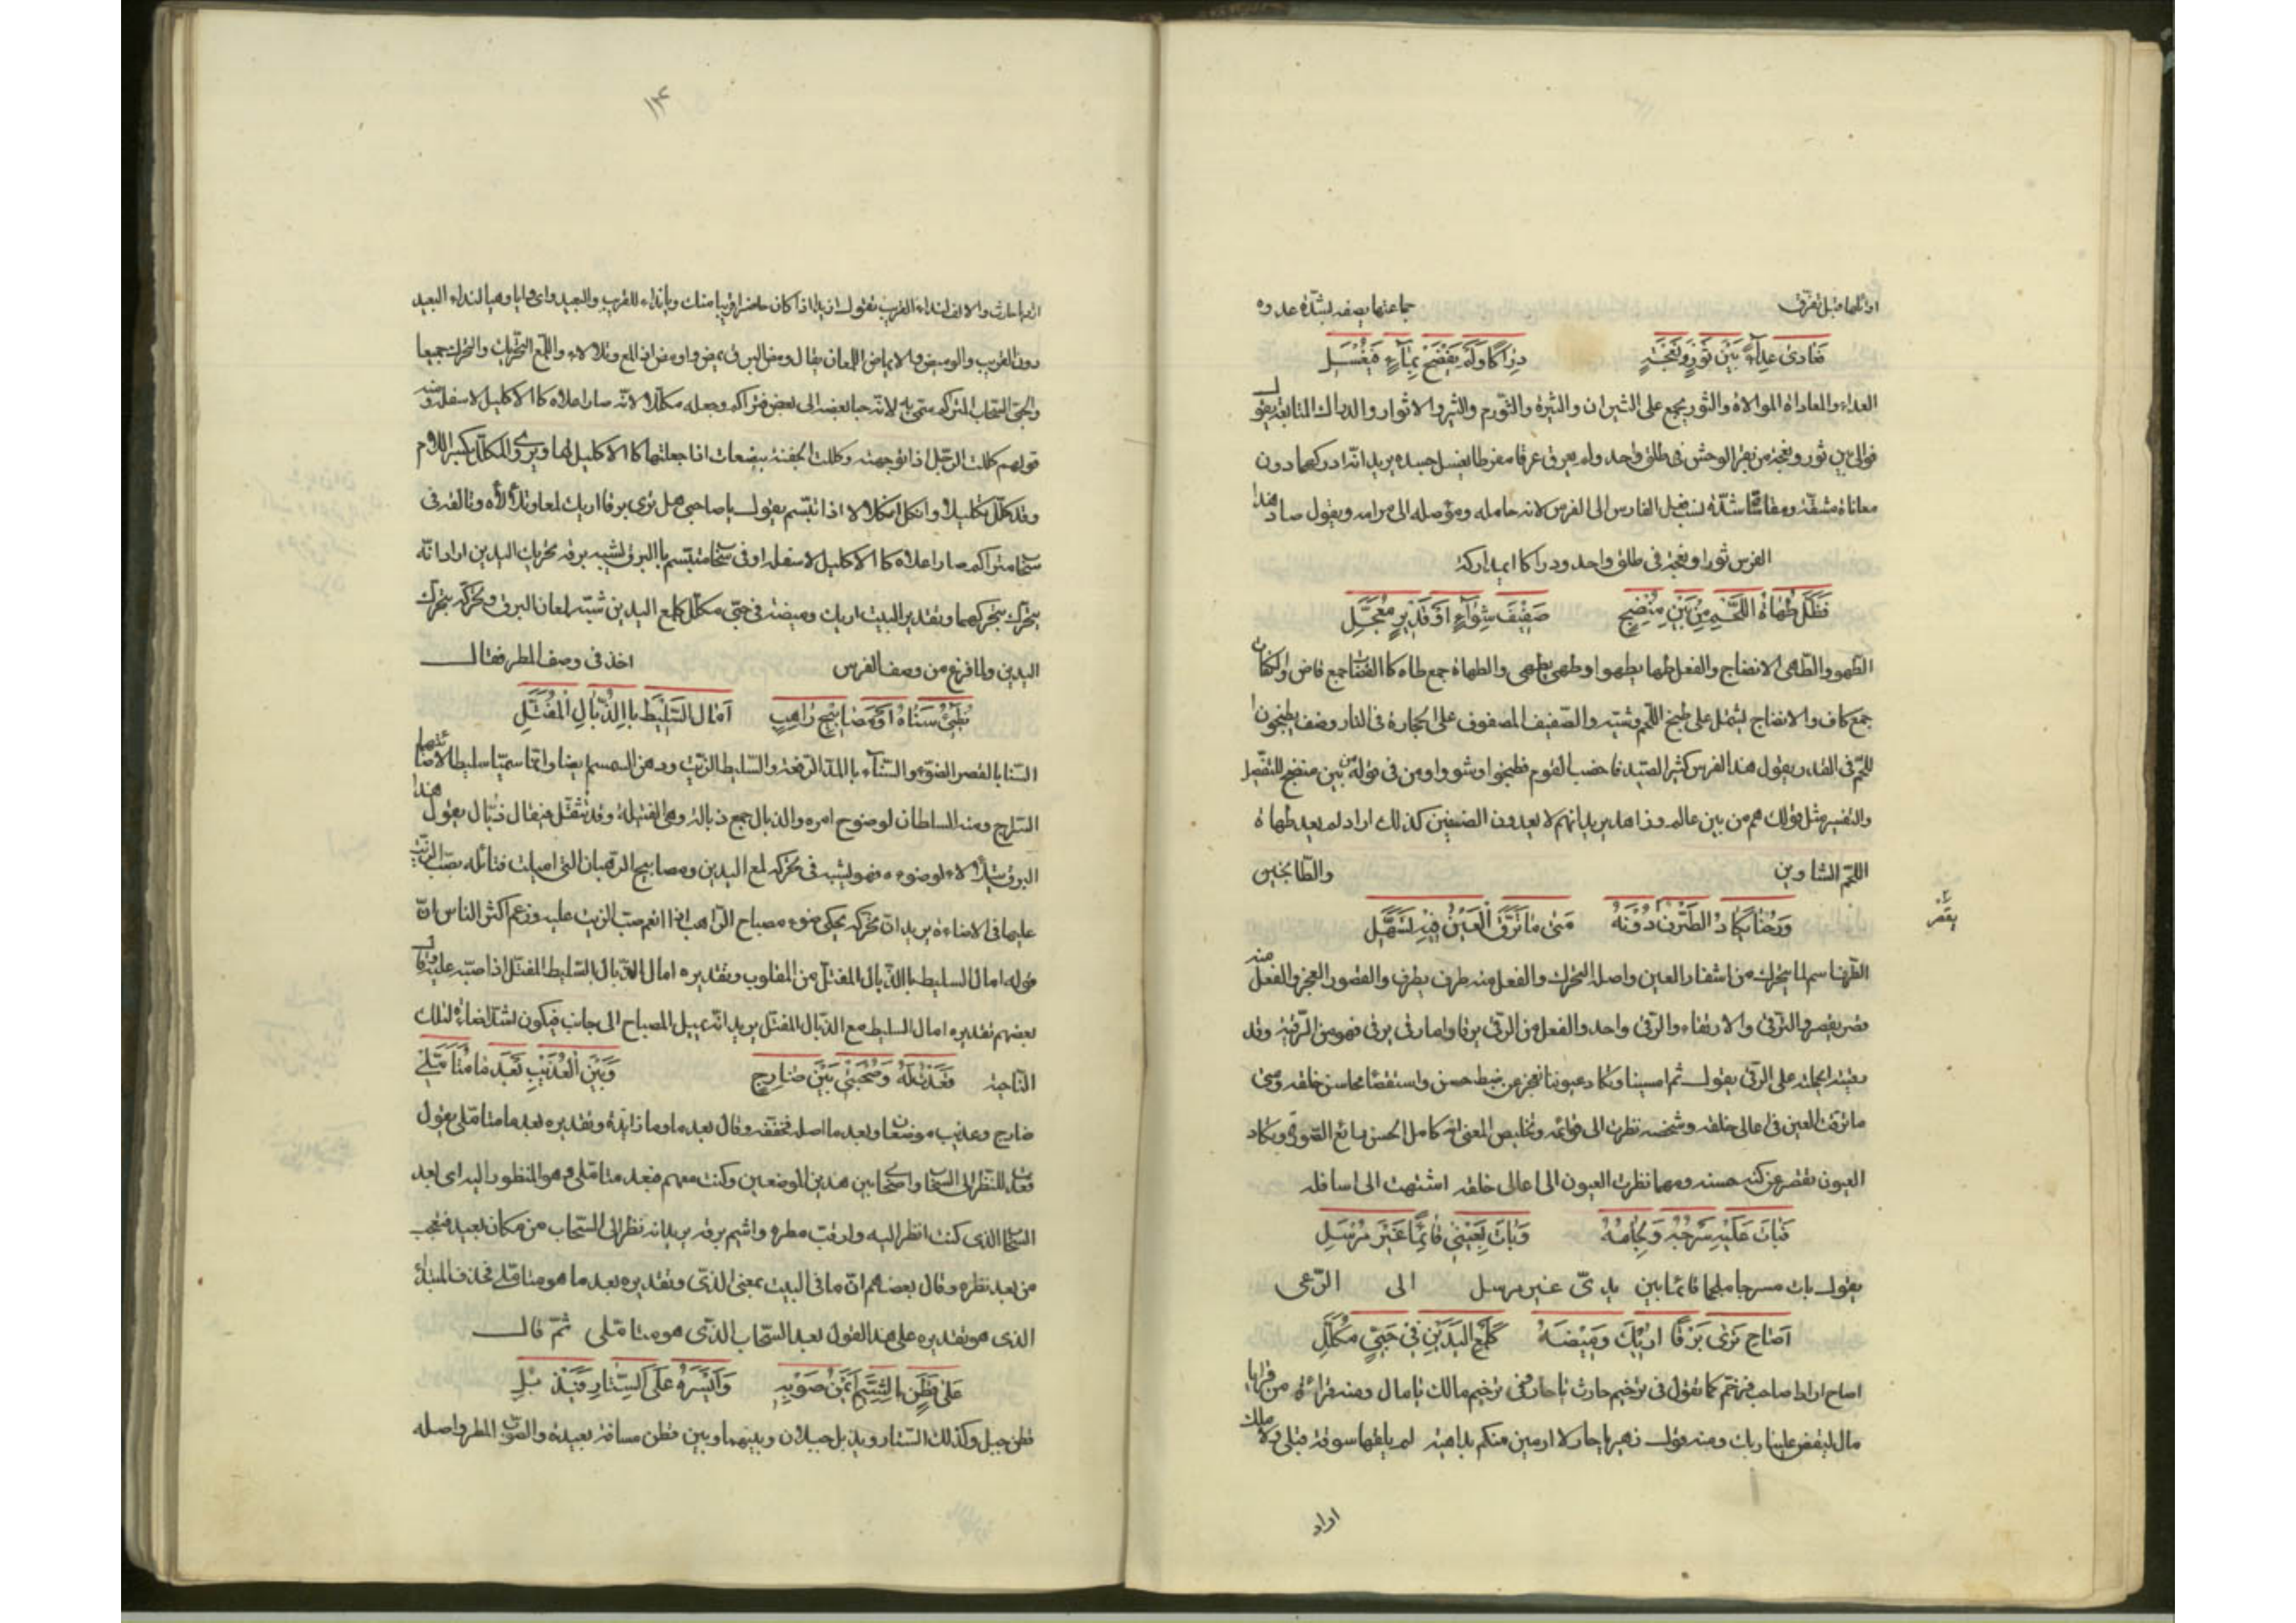 اوائلها قبل تفرق جماعتها يصفه بشدة عدوه
فَعَادى عِدآءً بَيْنَ ثَوْرٍ وَنَعْجَةٍ دِرَاكًا وَلَمْ يَنْضَحْ بِمَآءٍ فَيُغْسَلِ
العداء والمعاداة الموالاة والثور يجمع على الثيران والثيرة والثورة والثيرة والاثوار والدراك المتابعة يقول
فوالى بين ثور ونعجة من بقر الوحش فى طلق واحد ولم يعرق عرقا مفرطا يغسل جسده يريد انه ادركهما دون
معاناة مشقة ومقاساة شدة نسب فعل الفارس الى الفرس لانه حامله وموصله الى مرامه ويقول صاد هذا
الفرس ثورا ونعجة فى طلق واحد ودراكا اى مداركة
فَظَلَّ طُهَاةُ اللَّحْمِ مِنْ بَيْنِ مُنْضِجٍ صَفِيْفَ شِوَآءٍ اَوْ قَدِيْرٍ مُعَجَّلِ
الطهو والطهى الانضاج والفعل طها يطهوا وطهى يطهى والطهاة جمع طاه كا القضاة جمع قاض والكفاة
جمع كاف والانضاج يشتمل على طبخ اللحم وشيه والصفيف المصفوف على الحجارة فى النار وصف يطبخون
اللحم فى القدر يقول هذا الفرس كثر الصيد فاخصب القوم فطبخوا وشووا ومن فى قوله من بين منضج للتفصيل
والتفسير مثل قولك هم من بين عالم وزاهد يريد انهم لا يعدون الصنفين كذلك اراد لم يعد طهاة
اللحم الشاوين والطابخين
وَرُحْنَا يَكَادُ الطَّرْفُ دُوْنَهُ مَتى مَا تَرَقَّ الْعَيْنُ فِيْهِ تَسَهَّلِ
يقصر
الطرف اسم لما يتحرك من اشفار العين واصله التحرك والفعل منه طرف يطرف والقصور العجز والفعل منه
قصر يقصر والترقى والارتقاء والرقى واحد والفعل من الرقى يرقا واما رقى يرقى فهو من الرقية وقد
على الرقى يقول ثم امسينا وتكاد عيوننا تعجز عن ضبط حسنه واستقصا محاسن خلقه ومتى
ما ترقت العين فى اعالى خلقه وشخصه نظرت الى قوائمه وتلخيص المعنى انه كامل الحسن رائع الصورة وتكاد
العيون تقصر عن كنه حسنه ومهما نظرت العيون الى اعالى خلقه اشتهت الى اسافله
فَبَاتَ عَلَيْهِ سَرْجُهُ وَلِجَامُهُ وَبَاتَ بِعَيْنِي قَائِمًا غَيْرَ مُرْسَلِ
يقول بات مسرجا ملجما قائما بين يدىّ غير مرسل الى الرعى
اَصَاحِ تَرى بَرْقًا اُرِيْكَ وَمِيْضَهُ كَلَمْعِ الْيَدَيْنِ فِى حَبِىٍّ مُكَلَّلِ
اصاح اراد صاحب فرخم كما تقول فى ترخيم حارث يا حار وفى ترخيم مالك يا مال ومنه قراءة من قرا يا
مال ليقض علينا ربك ومنه قول زهير يا حار لا ارمين منكم بداهية لم يلقها سوقة قبلى ولا ملك
اراد
۱۴
اراد يا حارث والالف لنداء القريب تقول ازيدا اذا كان حاضرا قريبا منك ويا نداء للقريب والبعيد واى وايا وهيا لنداء البعيد
دون القريب والوميض والايماض اللمعان يقال ومض البرق يمض واومض اذا لمع وتلالاء واللمع التحريك والتحرك جميعا
والحبى السحاب المتراكم سمى به لانه حبا بعضه الى بعض فتراكم وجعله مكللا لانه صار اعلاه كا الاكليل لاسفله ومنه
قولهم كللت الرجل اذا توجته وكللت الجفنة ببضعات اذا جعلتها كا الاكليل لها ويروى والمكلل بكسر اللام
وقد كلل تكليلا وانكل انكلالا اذا تبسم يقول يا صاحبى هل ترى برقا اريك لمعانه وتلألأه وتالقه فى
سحاب متراكم صار اعلاه كا الاكليل لاسفله او فى سحاب متبسم با البرق يشبه برقه تحريك اليدين اراد انه
يتحرك تحركهما وتقدير البيت اريك وميضه فى حبى مكلل كلمع اليدين شبه لمعان البرق وتحركه بتحرك
اليدين ولما فرغ من وصف الفرس اخذ فى وصف المطر فقال
يُضِىْءُ سَنَاهُ اَوْ مَصَابِيْحُ رَاهِبٍ اَمَالَ السَّلِيْطَ بِا الذُّبَالِ الْمُفَتَّلِ
السنا بالقصر الضوء والسناء با المد الرفعة والسليط الزيت ودهن السمسم ايضا وانما سميا سليطا لاضائتهما
السراج ومنه السلطان لوضوح امره والذبال جمع ذبالة وهى الفتيلة وقد تثقل فيقال ذبّال يقول هذا
البرق يتلألاء ضوءه فهو يشبه فى تحركه لمع اليدين ومصابيح الرهبان التى اميلت فتائله بصب الزيت
عليها فى الاضاءة يريد ان تحركه يحكى ضوء مصباح الراهب اذا انعم صب الزيت عليه وزعم اكثر الناس ان
قوله امال السليط با الذبال المفتل من المقلوب وتقديره امال الذبال بالسليط المفتل اذا صبه عليه وقال
بعضهم تقديره امال السليط مع الذبال المفتل يريد انه يميل المصباح الى جانب فيكون اشد اضاءة لتلك
الناحية قَعَدْتُ لَهُ وَصُحْبَتِى بَيْنَ ضَارِجٍ وَبَيْنَ الْعُذَيْبِ بَعْدَ مَا مُتَأَمَّلِى
ضارج وعذيب موضعان وبعد ما اصله فخففه وقال بعد ما وما زائدة وتقديره بعد ما متاملى يقول
قعدت للنظر الى السحاب واصحابى بين هذين الموضعين وكنت معهم فبعد متاملى وهو المنظور اليه اى بعد
السحاب الذى كنت انظر اليه وارقب مطره واشيم برقه يريد انه نظر الى السحاب من مكان بعيد فتعجب
من بعد نظره وقال بعضهم ان ما فى البيت بمعنى الذى وتقديره بعد ما هو متاملى فحذف المبتدأ
الذى هو تقديره على هذا القول بعد السحاب الذى هو متاملى ثم قال
عَلى قَطَنٍ بِا لشَّيْمِ اَيْمَنُ صَوْبِهِ وَاَيْسَرُهُ عَلَى السِّتَارِ فَيَذْ بُلِ
قطن جبل وكذلك الستار ويذبل جبلان وبينهما وبين قطن مسافة بعيدة والصوب المطر واصله